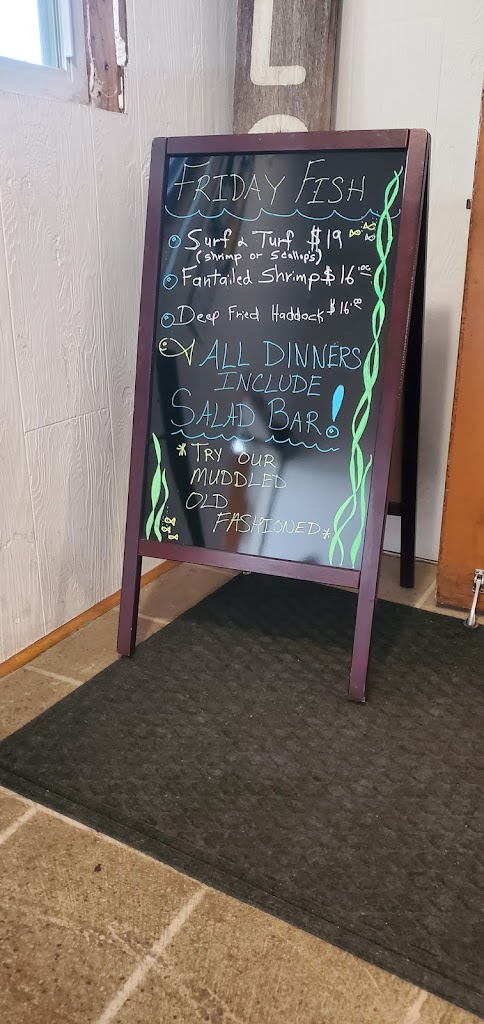 LO
FRIDAY FISH
Surf & Turf $19
(shrimp or scallops)
Fantailed Shrimp $16.00
Deep Fried Haddock $16.00
ALL DINNERS
INCLUDE
SALAD BAR!
*TRY OUR
MUDDLED
OLD
FASHIONED*